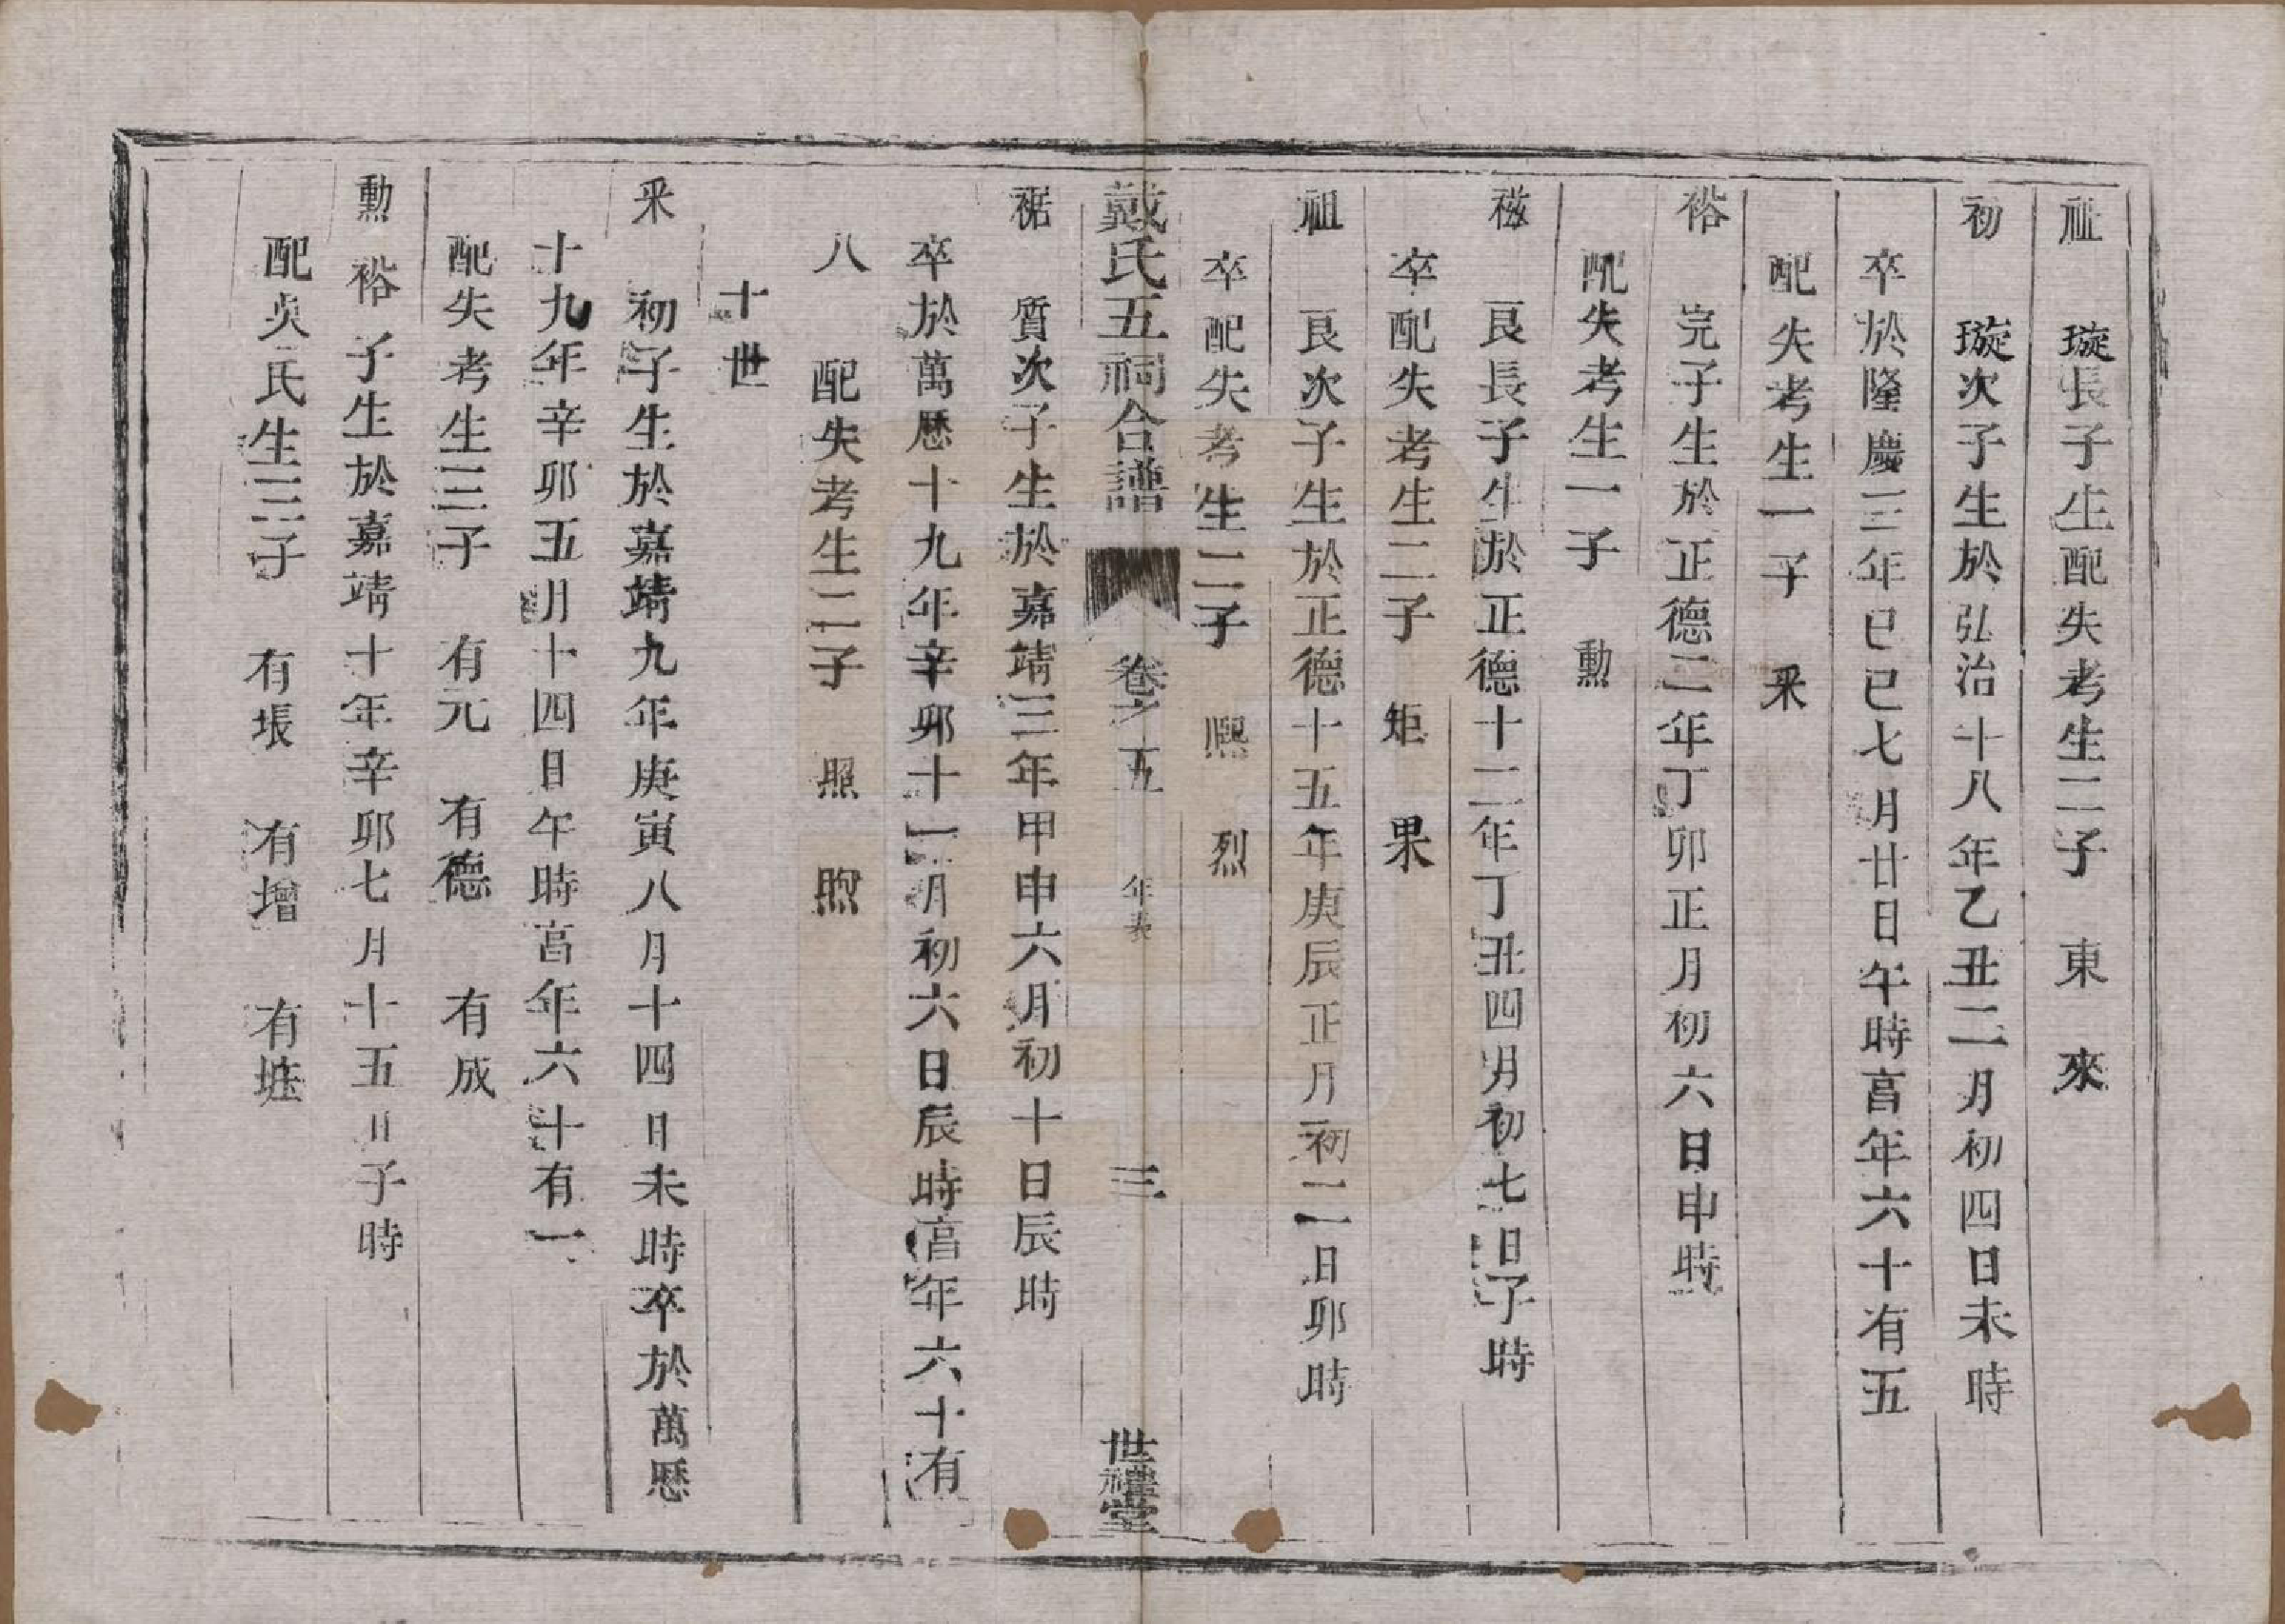 祉 璇長子生配失考生二子 東 來
初 璇次子生於弘治十八年乙丑二月初四日未時
卒於隆慶三年巳巳七月廿日午時啇年六十有五
配失考生一子 采
裕 完子生於正德二年丁卯正月初六日申時
配失考生一子 勳
磁 艮長子生於正德十二年丁丑四月初七日子時
卒配失考生二子 矩 果
祖 艮次子生於正德十五年庚辰正月初二日卯時
卒配失考生二子 熈 烈
戴氏五祠合譜 卷之五 年表 三 世禮堂
裾 質次子生於嘉靖三年甲申六月初十日辰時
卒於萬歷十九年辛卯十一月初六日辰時啇年六十有
八 配失考生二子 照 煦
十世
采 初子生於嘉靖九年庚寅八月十四日未時卒於萬歷
十九年辛卯五月十四日午時啇年六十有一
配失考生三子 有元 有德 有成
勳 裕子生於嘉靖十年辛卯七月十五日子時
配吳氏生三子 有塲 有增 有堆